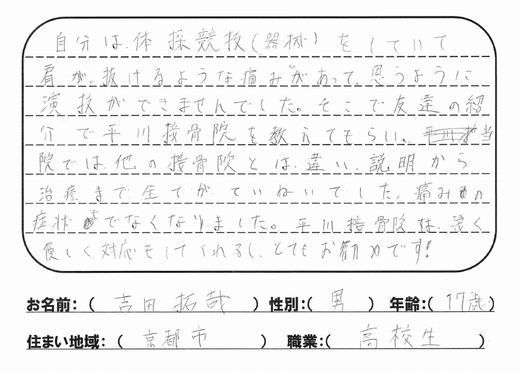 自分は、体操競技(器械)をしていて
肩が、抜けるような痛みがあって、思うように
演技ができませんでした。そこで友達の紹
介で平川接骨院を教えてもらい、当
院では、他の接骨院とは、違い、説明から
治療まで全てがていねいでした。痛みの
症状までなくなりました。平川接骨院は、凄く
優しく対応をしてくれるし、とてもお勧めです!
お名前:(吉田 拓哉) 性別:(男) 年齢:(17歳)
住まい地域:(京都市) 職業:(高校生)